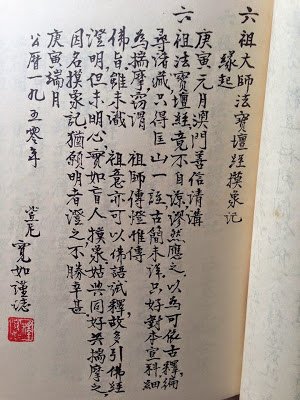 六祖大師法寶壇經摸象記
緣起
庚寅元月澳門善信請講
六祖法寶壇經竟不自諒謬然應之以為可依古釋編
尋海藏只得匡山一註古簡未詳只好對本宣科細
為揣摩竊謂 祖師傳燈惟傳
佛旨雖未識 祖意亦可以佛語試釋故多引佛經
澄明但未明心實如盲人摸象姑與同好共揣摩之
因名摸象記猶願明者澄之不勝幸甚
庚寅端月
公曆一九五零年
尼 寬如謹誌